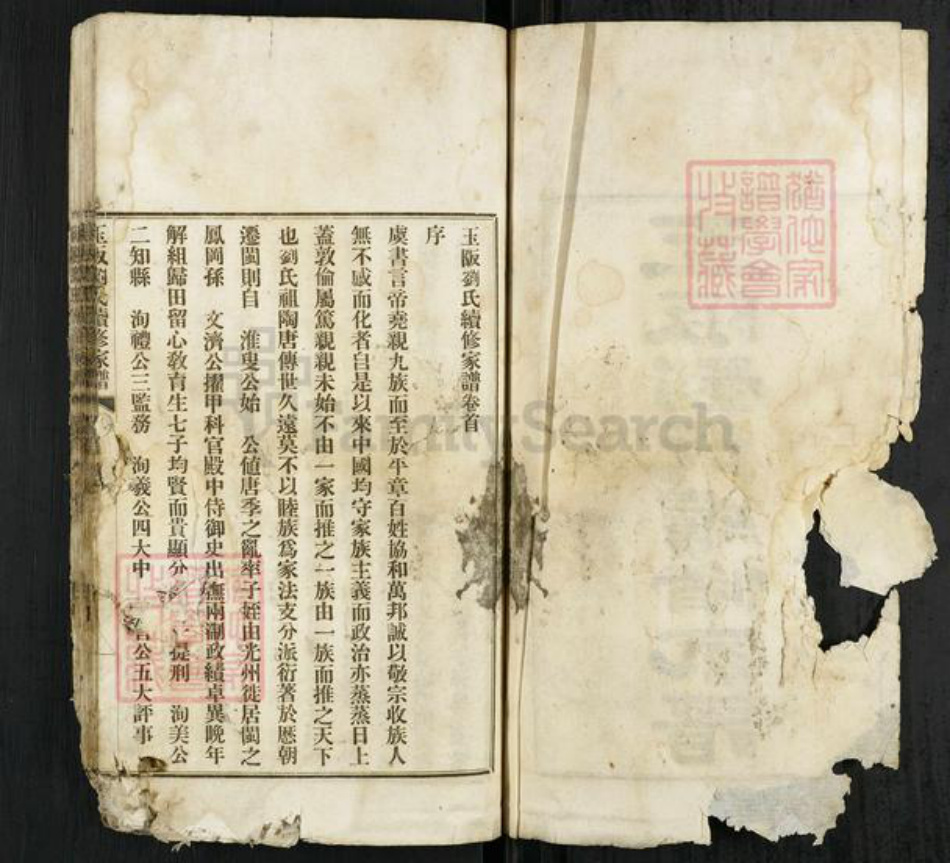 玉阪劉氏續修家譜卷首
序
虞書言帝堯親九族而至於平章百姓協和萬邦誠以敬宗收族人
無不感而化者自是以來中國均守家族主義而政治亦蒸蒸日上
蓋敦倫屬篤親親未始不由一家而推之一族由一族而推之天下
也劉氏祖陶唐傳世久遠莫不以睦族爲家法支分派衍著於歷朝
遷閩則自 淮叟公始 公値唐季之亂率子姪由光州徙居閩之
鳳岡孫 文濟公擢甲科官殿中侍御史出撫兩湖政績卓異晚年
解組歸田留心敎育生七子均賢而貴顯分 提刑 洵美公
二知縣 洵禮公三監務 洵義公四大中 公五大評事
玉阪劉氏續修家譜
FamilySearch
譜學會
收藏